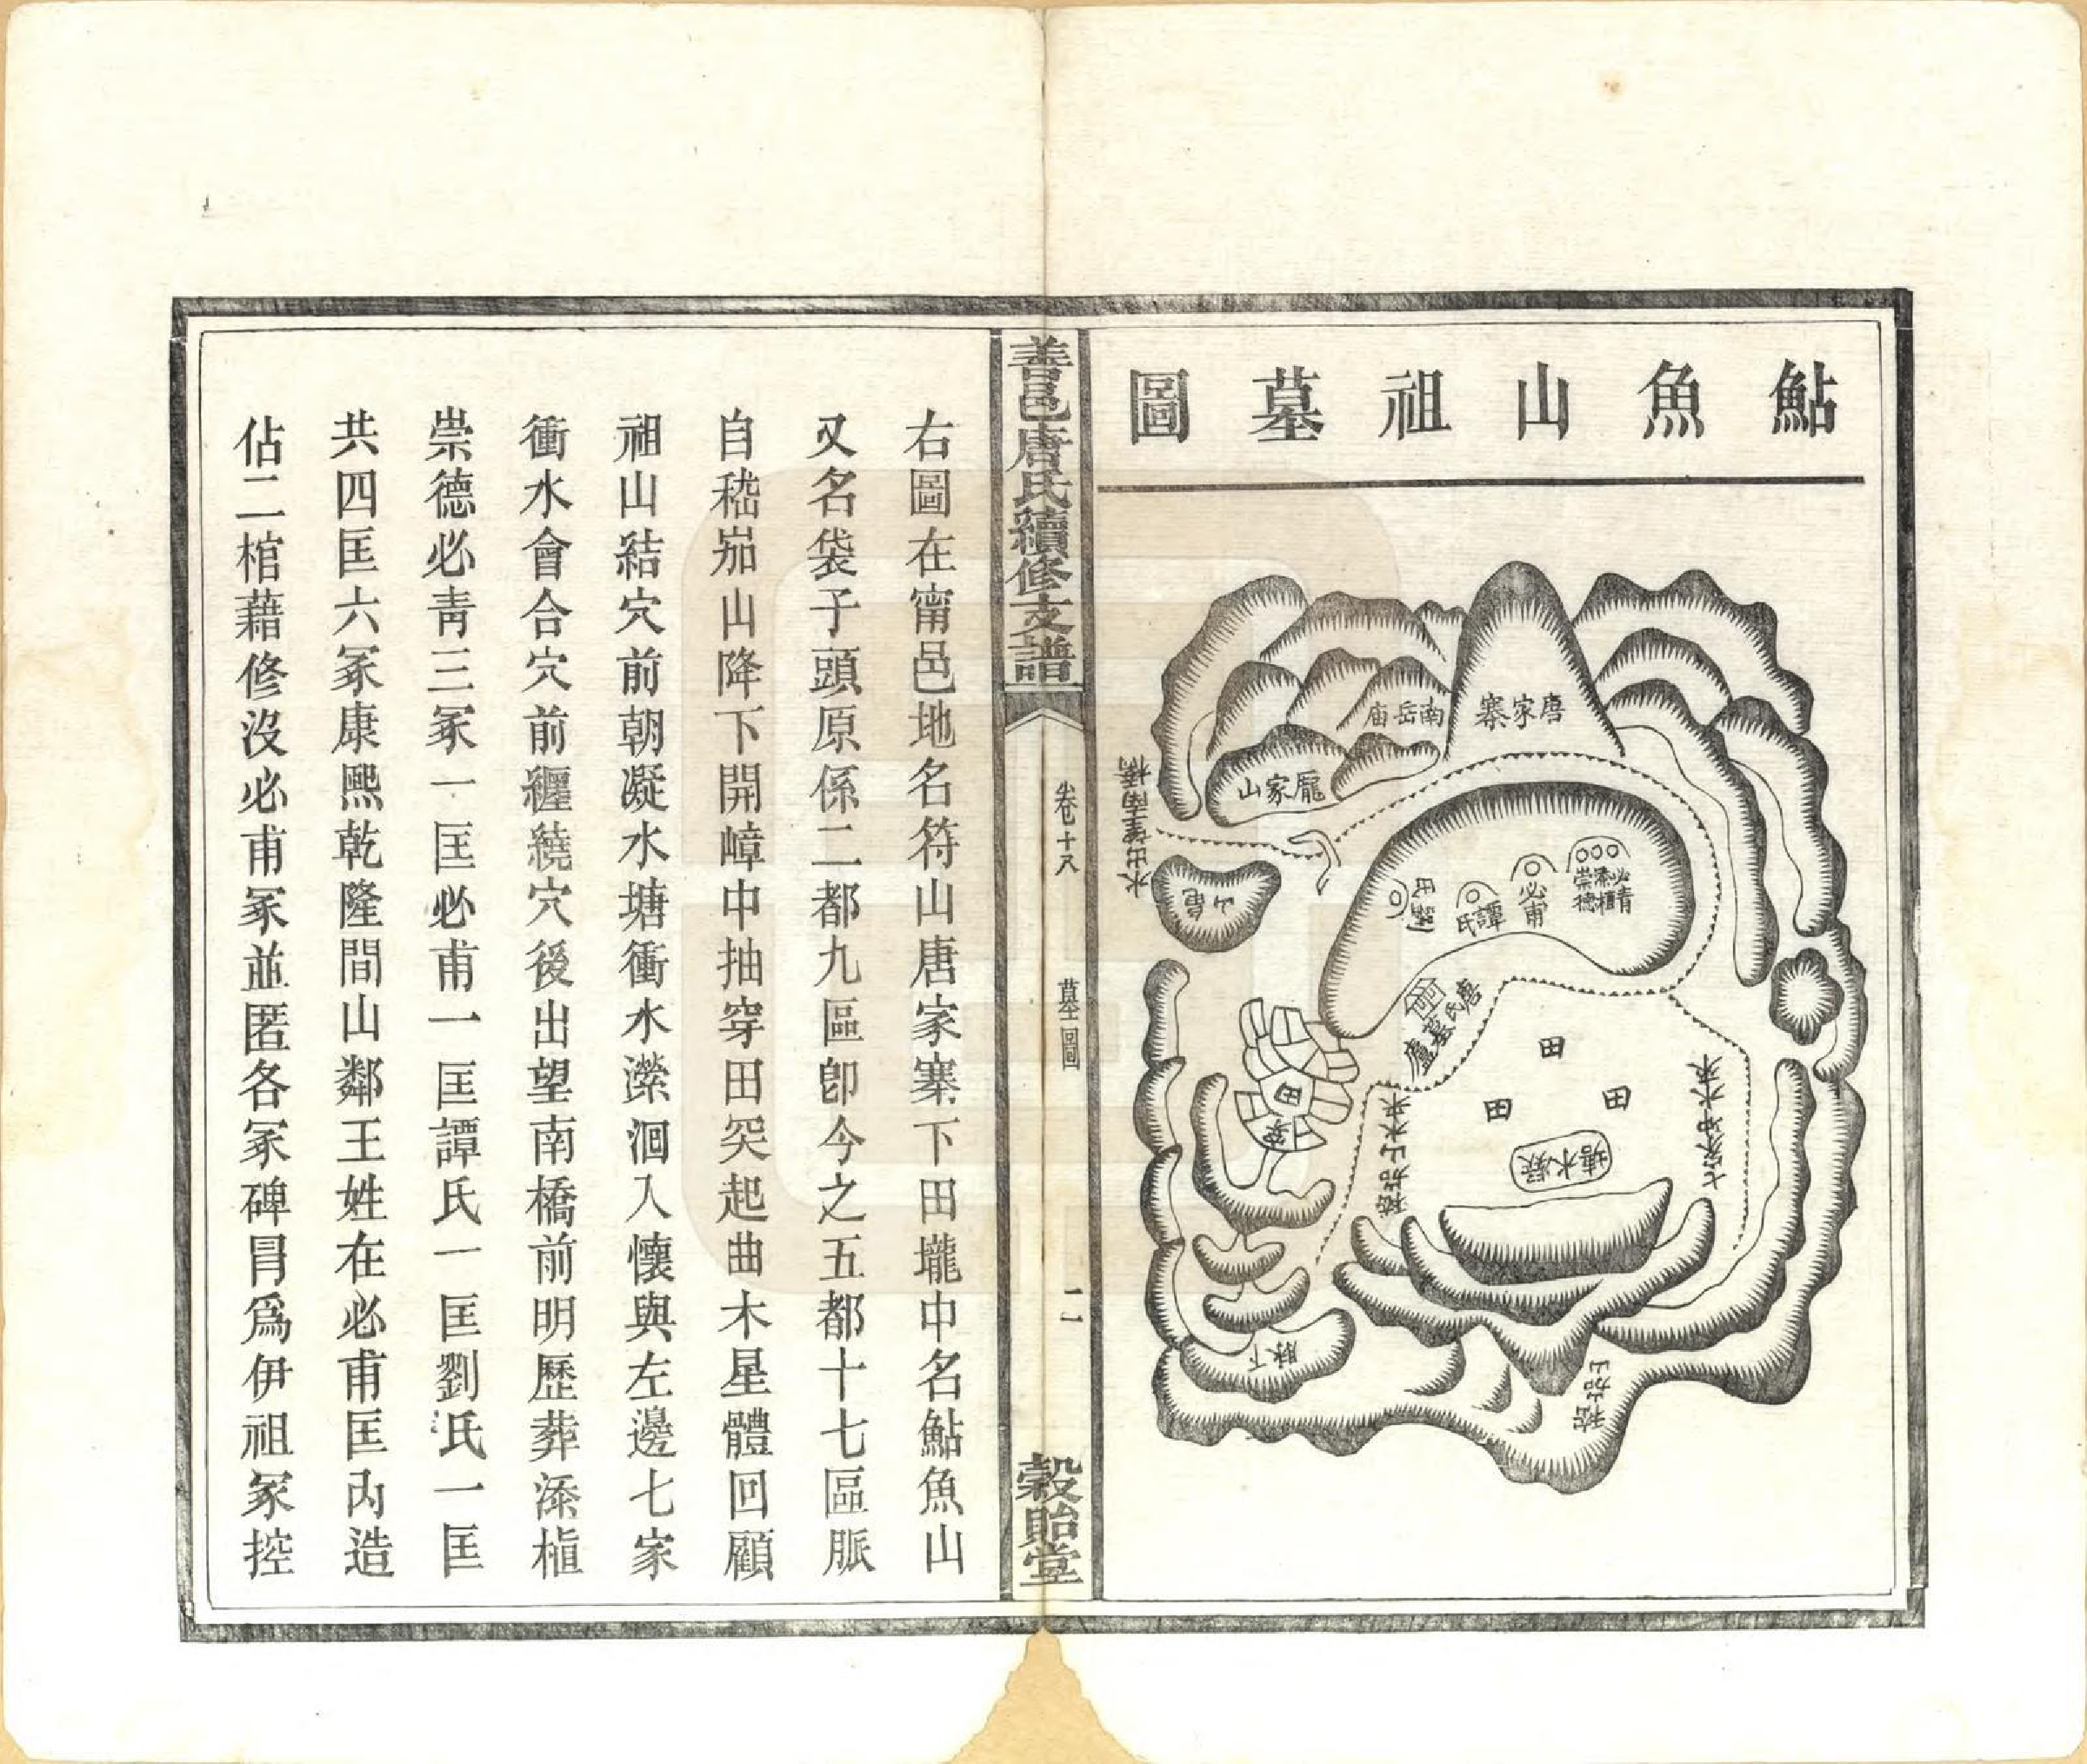 鮎魚山祖墓圖
唐家寨
南岳庙
龎家山
水出望南橋
龜山
必青
添樻
崇德
必甫
譚氏
劉氏
唐氏墓廬
田
田
田
田
凝水塘
七家冲水來
嵇茄山水來
下脉
嵇茄山
善邑唐氏續修支譜
卷十八
墓圖
二
穀貽堂
右圖在甯邑地名符山唐家寨下田壠中名鮎魚山
又名袋子頭原係二都九區卽今之五都十七區脈
自嵇茄山降下開嶂中抽穿田突起曲木星體回顧
祖山結穴前朝凝水塘衝水瀠洄入懷與左邊七家
衝水會合穴前纒繞穴後出望南橋前明歷葬添樻
崇德必靑三冢一匡必甫一匡譚氏一匡劉氏一匡
共四匡六冢康熙乾隆間山鄰王姓在必甫匡內造
佔二棺藉修沒必甫冢並匿各冢碑冐爲伊祖冢控